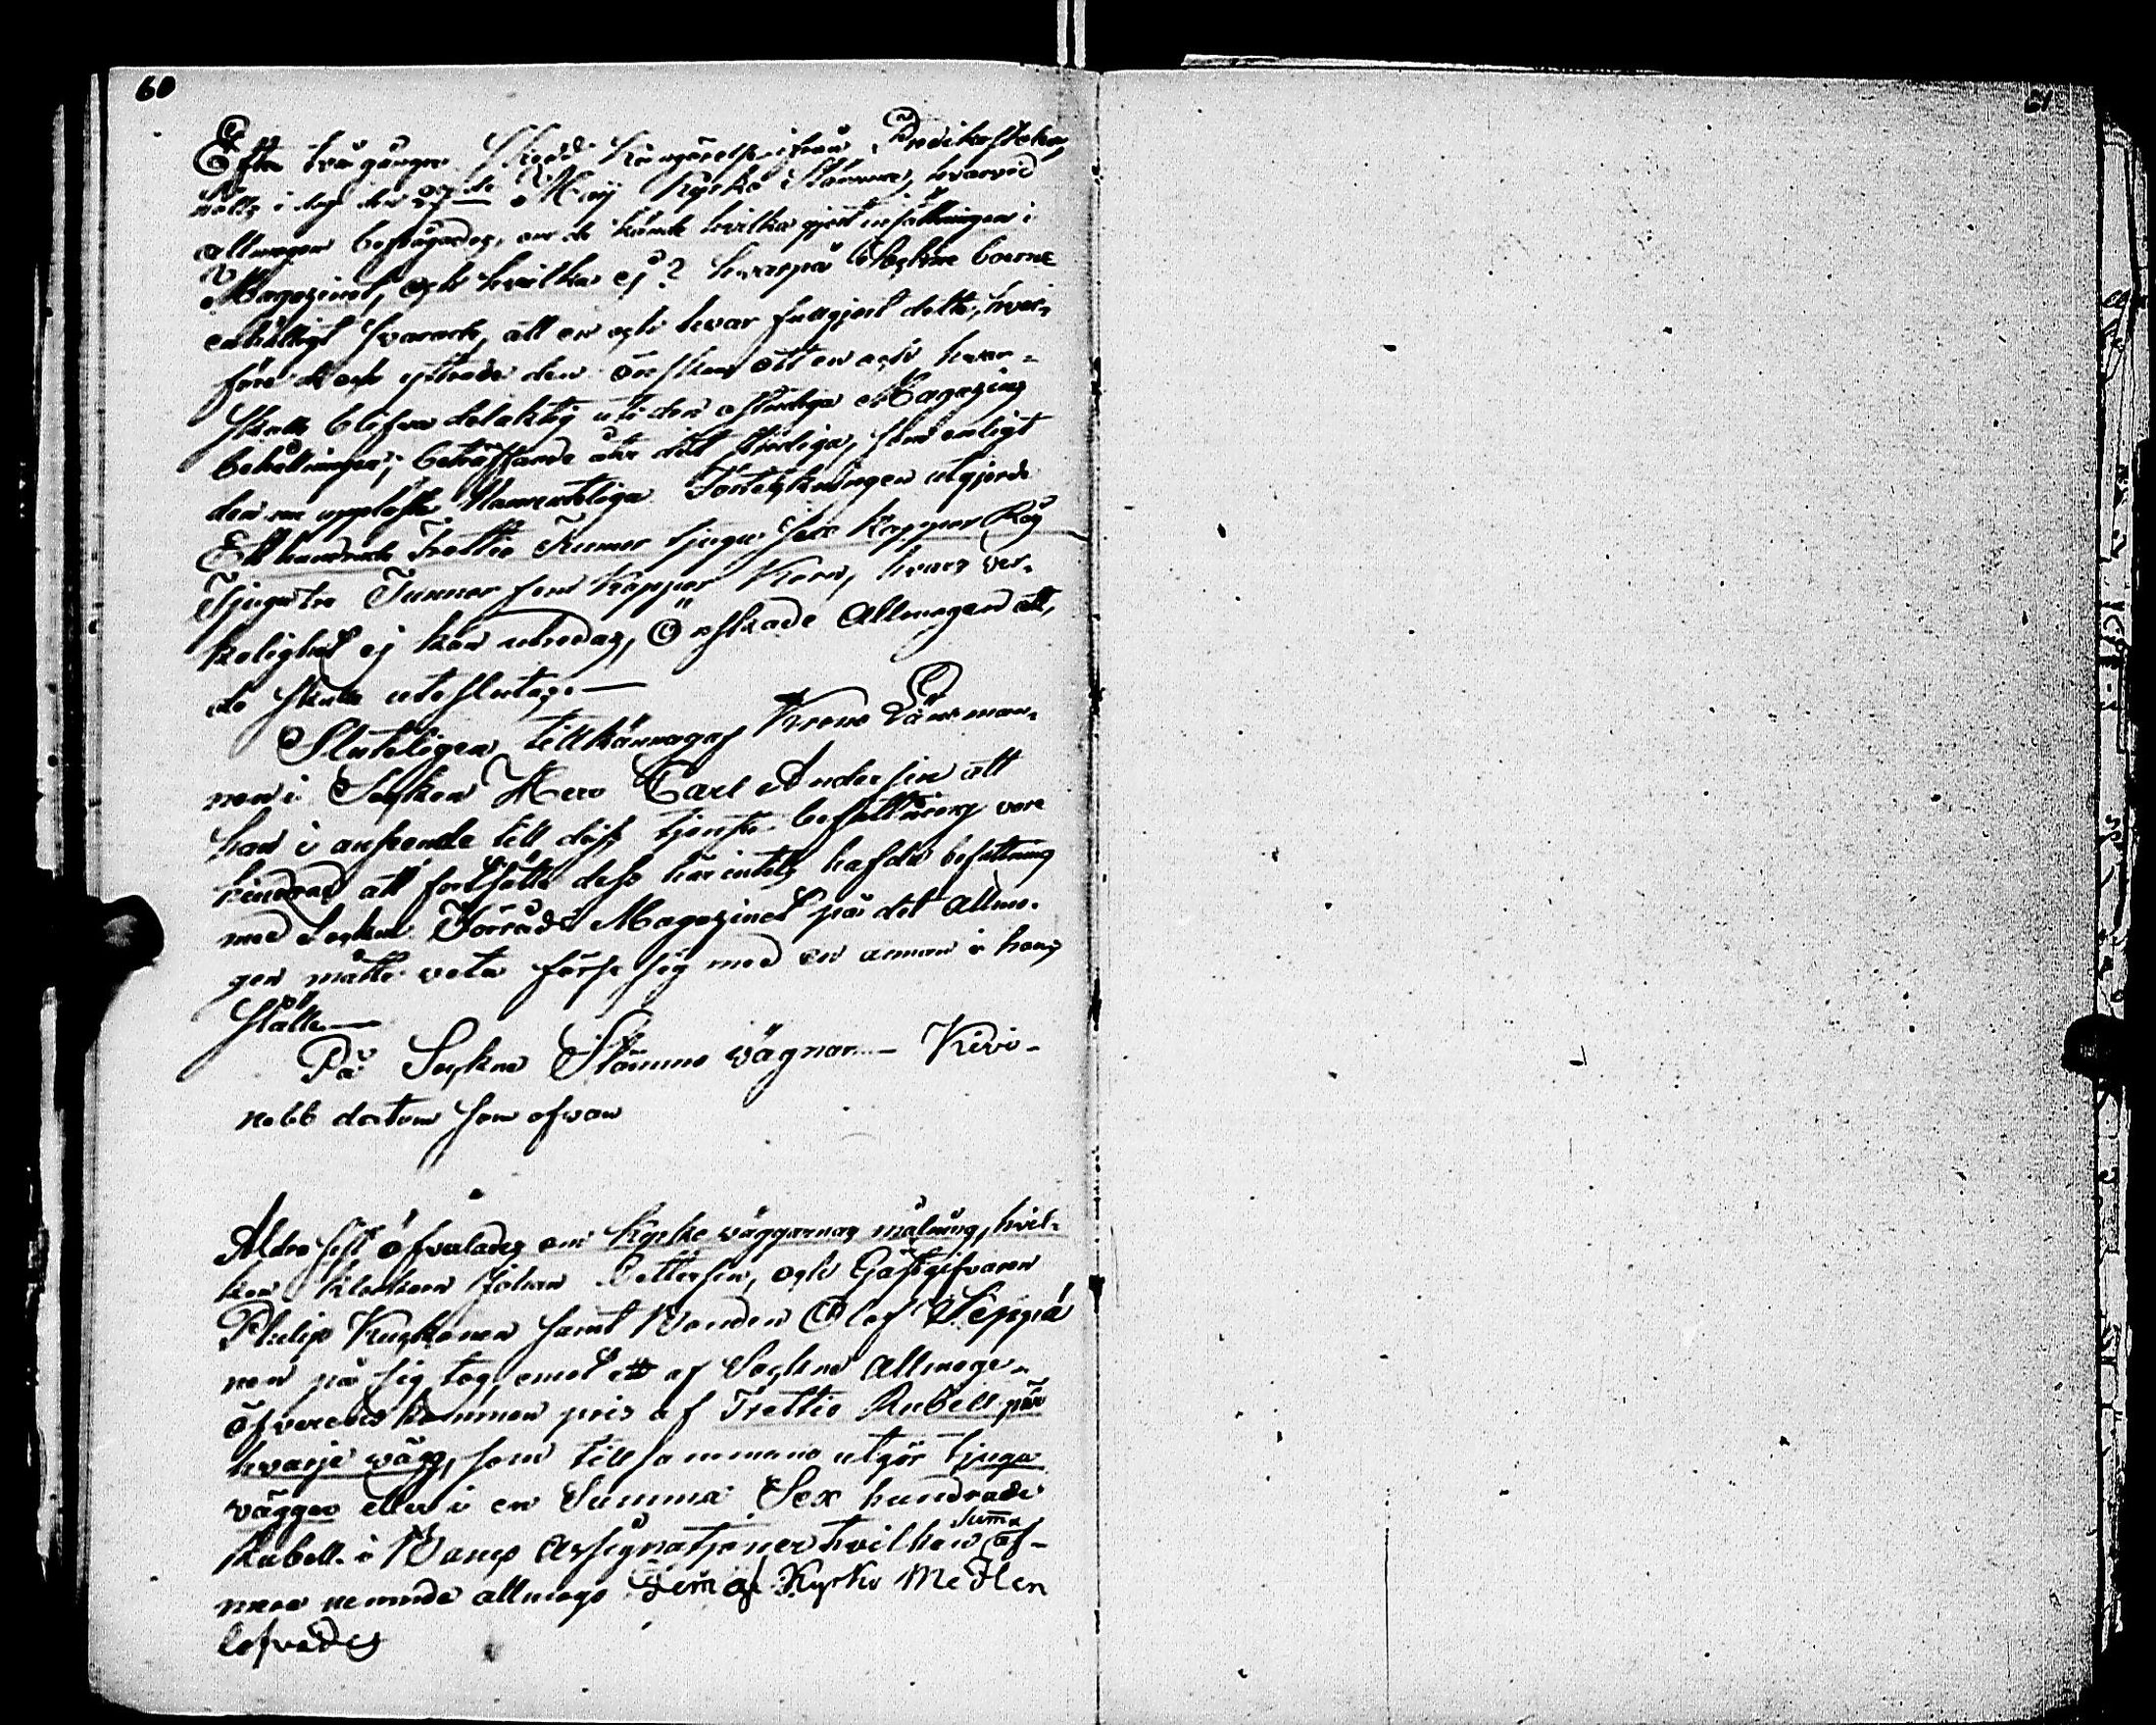 60
61
Efter två gånger skedd kungörelse ifrån Predikstolen,
hölts i dag den 27de Maij Kyrko Stämma, hvarvid
allmogen befrågades, om de kände hvilka gjort insättningen i
Magazinet, och hvilka ej? hvarpå Sockne boerne
enhälligt svarade, att en och hvar fullgjort detta, hvar-
före de ock yttrade den önskan att en och hvar
skulle blifva delaktig uti den ostridiga Magazins
behållningen; beträffande åter det stridiga, som enligt
den nu upplästa Namnteliga Förtekningen utgjorde
Ett hundrade Trettio Tunnor tjugu sex Kappor Råg
Tjugutre Tunnor fem Kappor Korn, hvars ver-
kelighet ej kan utredas, Önskade Allmogen att,
de skulle uteslutas.
Sluteligen tillkännagaf Krono Länsman-
nen i Socken Herr Carl Andersin att
han i anseende till dess tjenste befattning vore
hindrad att fortsätta dess här intils hafda befattning
med Sockne Förråds Magazinet på det Allmo-
gen måtte veta förse sig med en annan i hans
ställe
På Sockne Stämmo vägnar Kivi-
nebb datum som ofvan
Aldra sist öfverlades om Kyrke väggarnas målning, hvil-
ken Klockarn Johan Pettersin, och Gästgifvaren
Philip Kuckonen samt Bonden Olof Seppä
nen på sig tog, emot ett af Sockne Allmoge
öfverenskommen pris af Trettio Rubell för
hvarje vägg, som tillsammans utgör tjugu
väggar eller i en Summa Sex hundrade
Rubell. i Banco Assignationer hvilken Summa of-
nämnde allmoge af Kyrko Medlen
lofvades